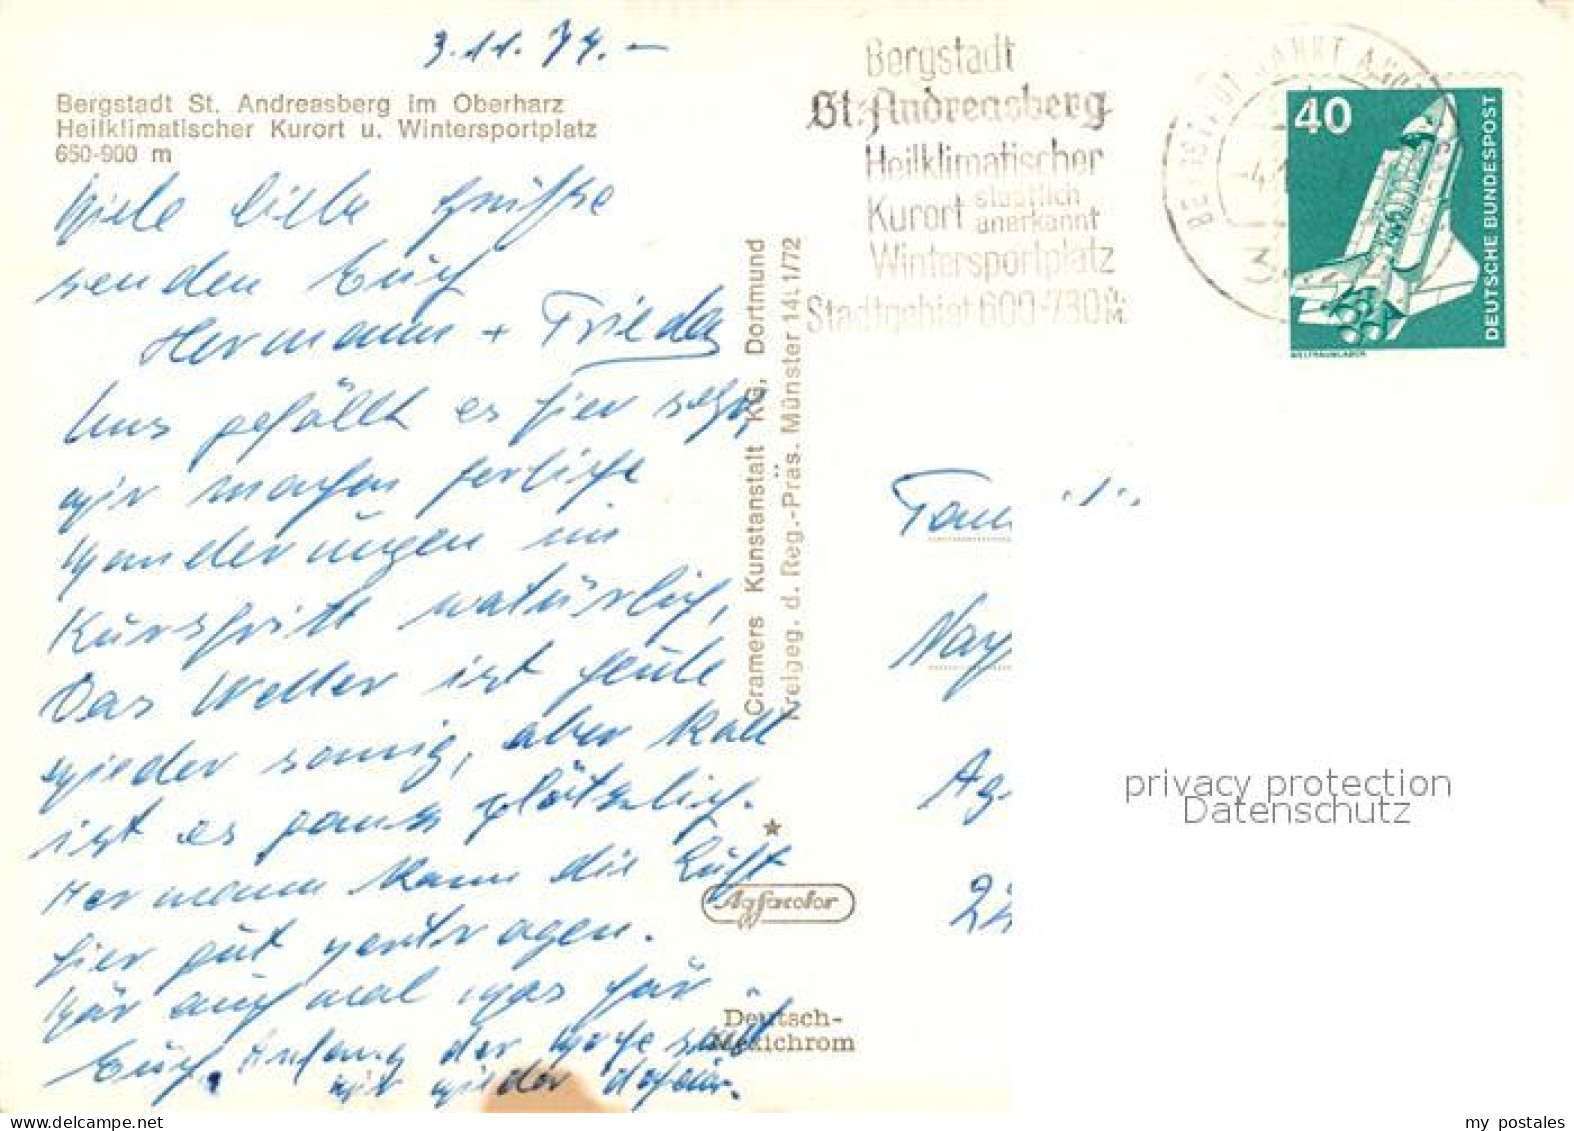 3.11.79.-
Bergstadt St. Andreasberg im Oberharz
Heilklimatischer Kurort u. Wintersportplatz
650-900 m
Viele liebe Grüße
senden Euch
Hermann + Frieda
Uns gefällt es hier sehr,
wir machen herliche
Wanderungen im
Kurschritt natürlich,
Das Wetter ist heute
wieder sonnig, aber kalt
ist es ganz plötzlich.
Hermann kann die Luft
hier gut vertragen.
Wär auch mal was für
Euch. Anfang der Woche sind
wir wieder daheim.
Cramers Kunstanstalt KG, Dortmund
Freigeg. d. Reg.-Präs. Münster 1411/72
Agfacolor
Deutsch-
Mexichrom
Bergstadt
St. Andreasberg
Heilklimatischer
Kurort staatlich
anerkannt
Wintersportplatz
Stadtgebiet 600-730
40
DEUTSCHE BUNDESPOST
WELTRAUMLABOR
privacy protection
Datenschutz
my postales
www.delcampe.net